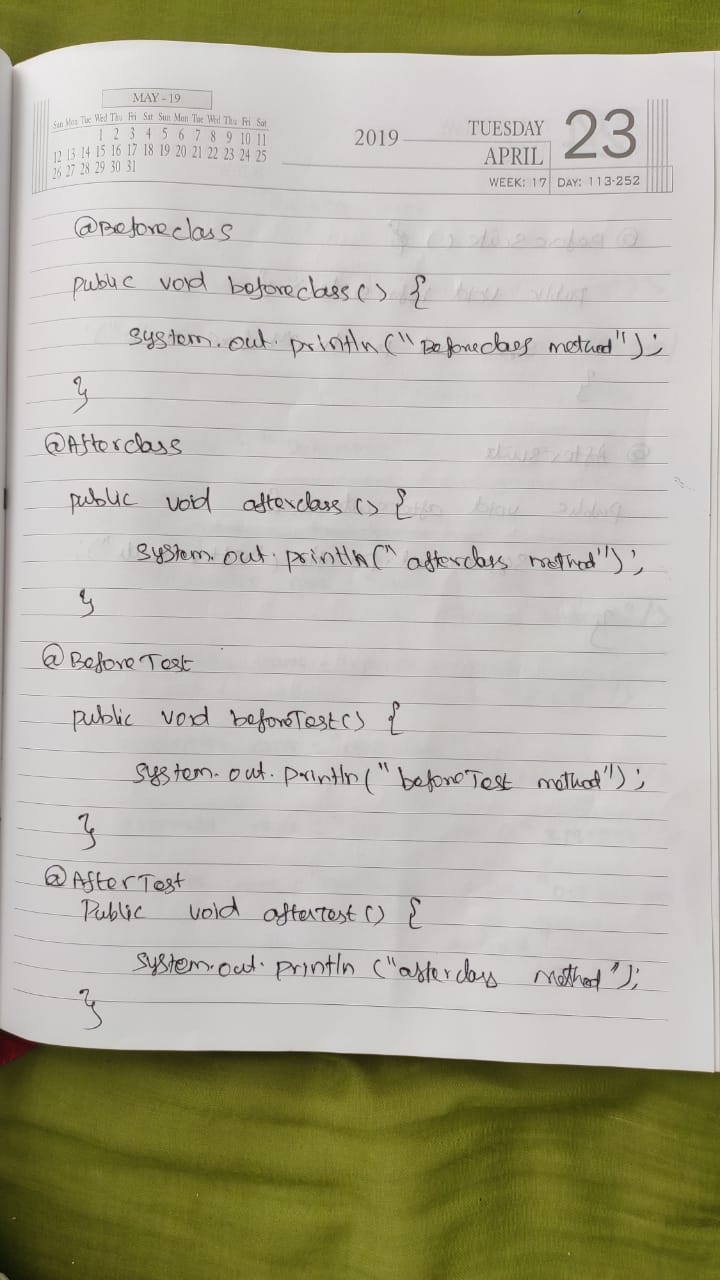 MAY - 19
Sun Mon Tue Wed Thu Fri Sat Sun Mon Tue Wed Thu Fri Sat
1 2 3 4 5 6 7 8 9 10 11
12 13 14 15 16 17 18 19 20 21 22 23 24 25
26 27 28 29 30 31
2019
TUESDAY
APRIL
23
WEEK: 17 DAY: 113-252
@Beforeclass
public void beforeclass() {
system.out.println("Beforeclass method");
}
@Afterclass
public void afterclass() {
system.out.println("afterclass method");
}
@BeforeTest
public void beforeTest() {
system.out.println("beforeTest method");
}
@AfterTest
Public void afterTest() {
system.out.println ("afterclass method");
}